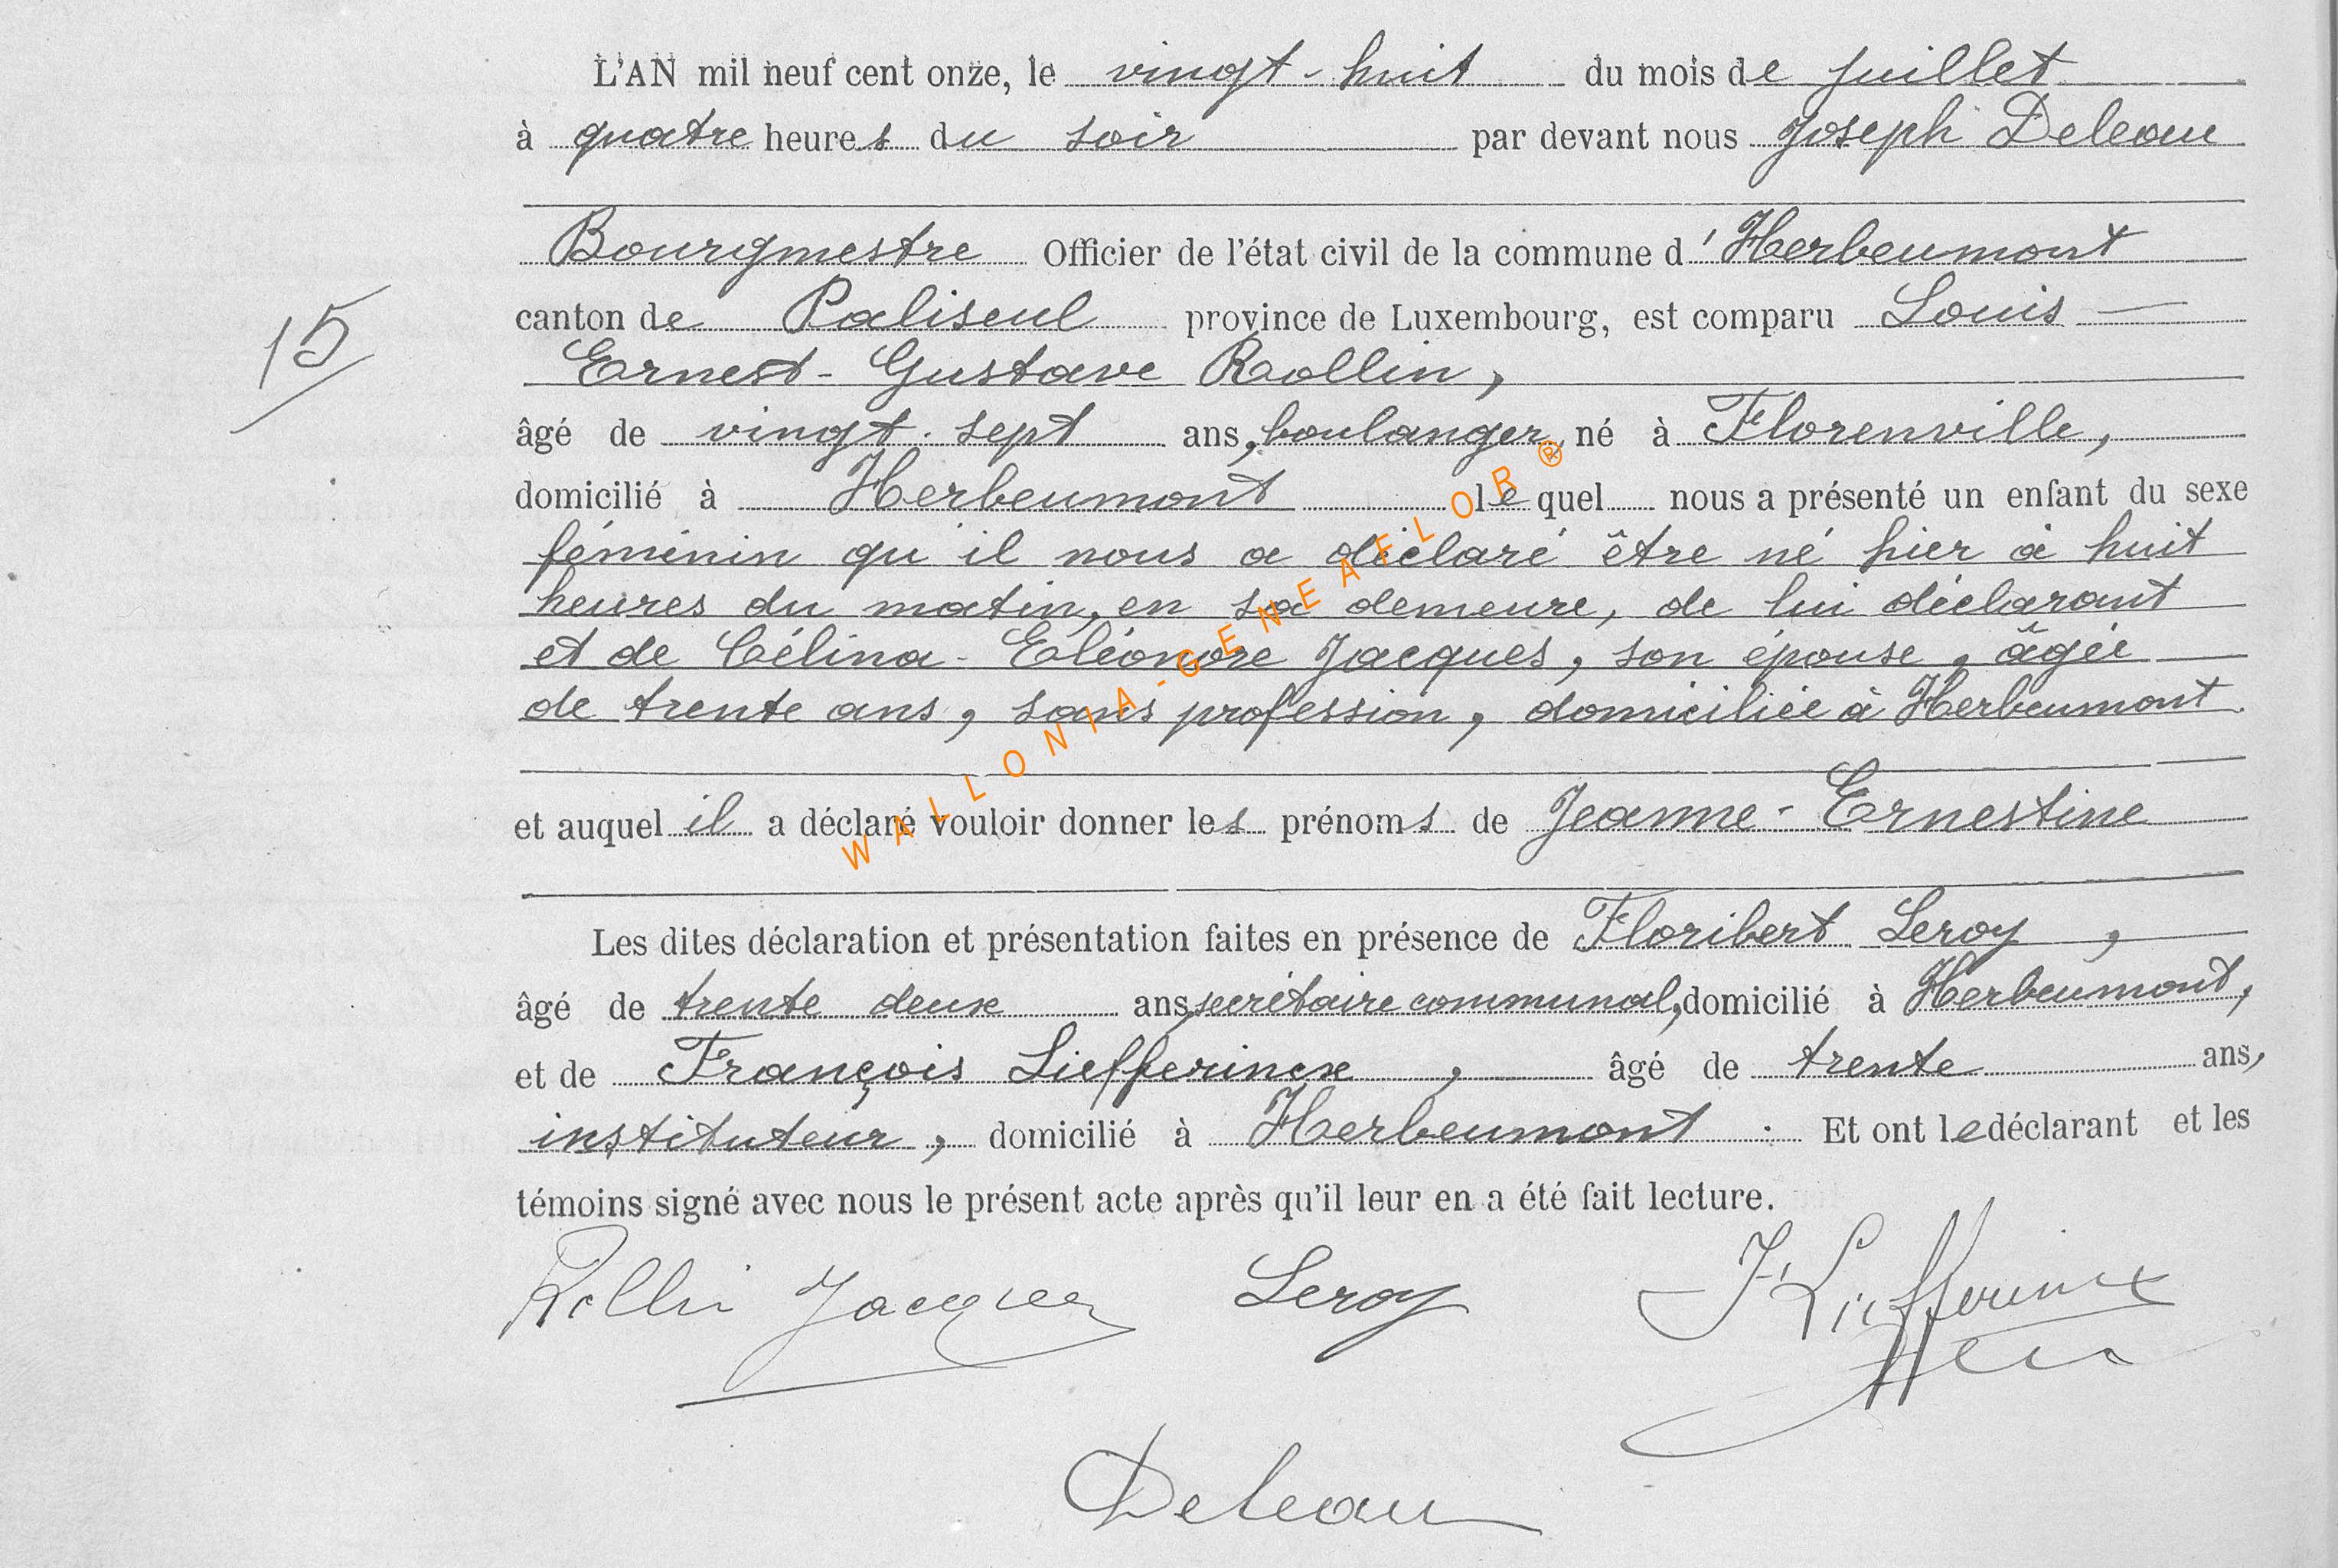 L'AN mil neuf cent onze, le vingt-huit du mois de juillet
à quatre heures du soir par devant nous Joseph Deleau
Bourgmestre Officier de l'état civil de la commune d'Herbeumont
canton de Paliseul province de Luxembourg, est comparu Louis-
15
Ernest-Gustave Rollin,
âgé de vingt-sept ans, boulanger, né à Florenville,
domicilié à Herbeumont lequel nous a présenté un enfant du sexe
féminin qu'il nous a déclaré être né hier à huit
heures du matin, en sa demeure, de lui déclarant
et de Célina-Eléonore Jacques, son épouse, âgée
de trente ans, sans profession, domiciliée à Herbeumont.
et auquel il a déclaré vouloir donner les prénoms de Jeanne-Ernestine
Les dites déclaration et présentation faites en présence de Floribert Leroy,
âgé de trente deux ans, secrétaire communal, domicilié à Herbeumont,
et de François Liefferinckx, âgé de trente ans,
instituteur, domicilié à Herbeumont. Et ont le déclarant et les
témoins signé avec nous le présent acte après qu'il leur en a été fait lecture.
Rollin Jacques Leroy F. Liefferinckx
Deleau
WALLONIA-GENEAFLOR ®